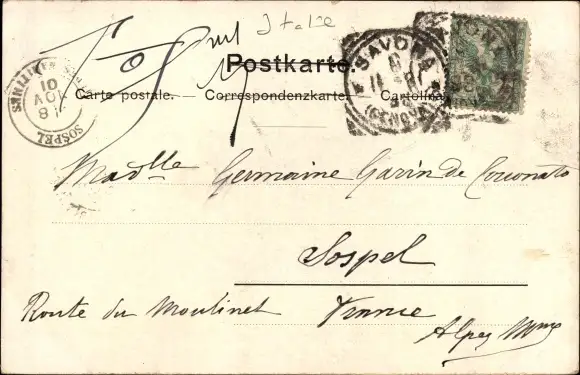 Italie
Postkarte.
Carte postale. — Correspondenzkarte. — Cartolina
SAVONA
SOSPEL
18
AOÛT
01
Madlle Germaine Garin de Cocconato
Sospel
Route du Moulinet France
Alpes Mmes